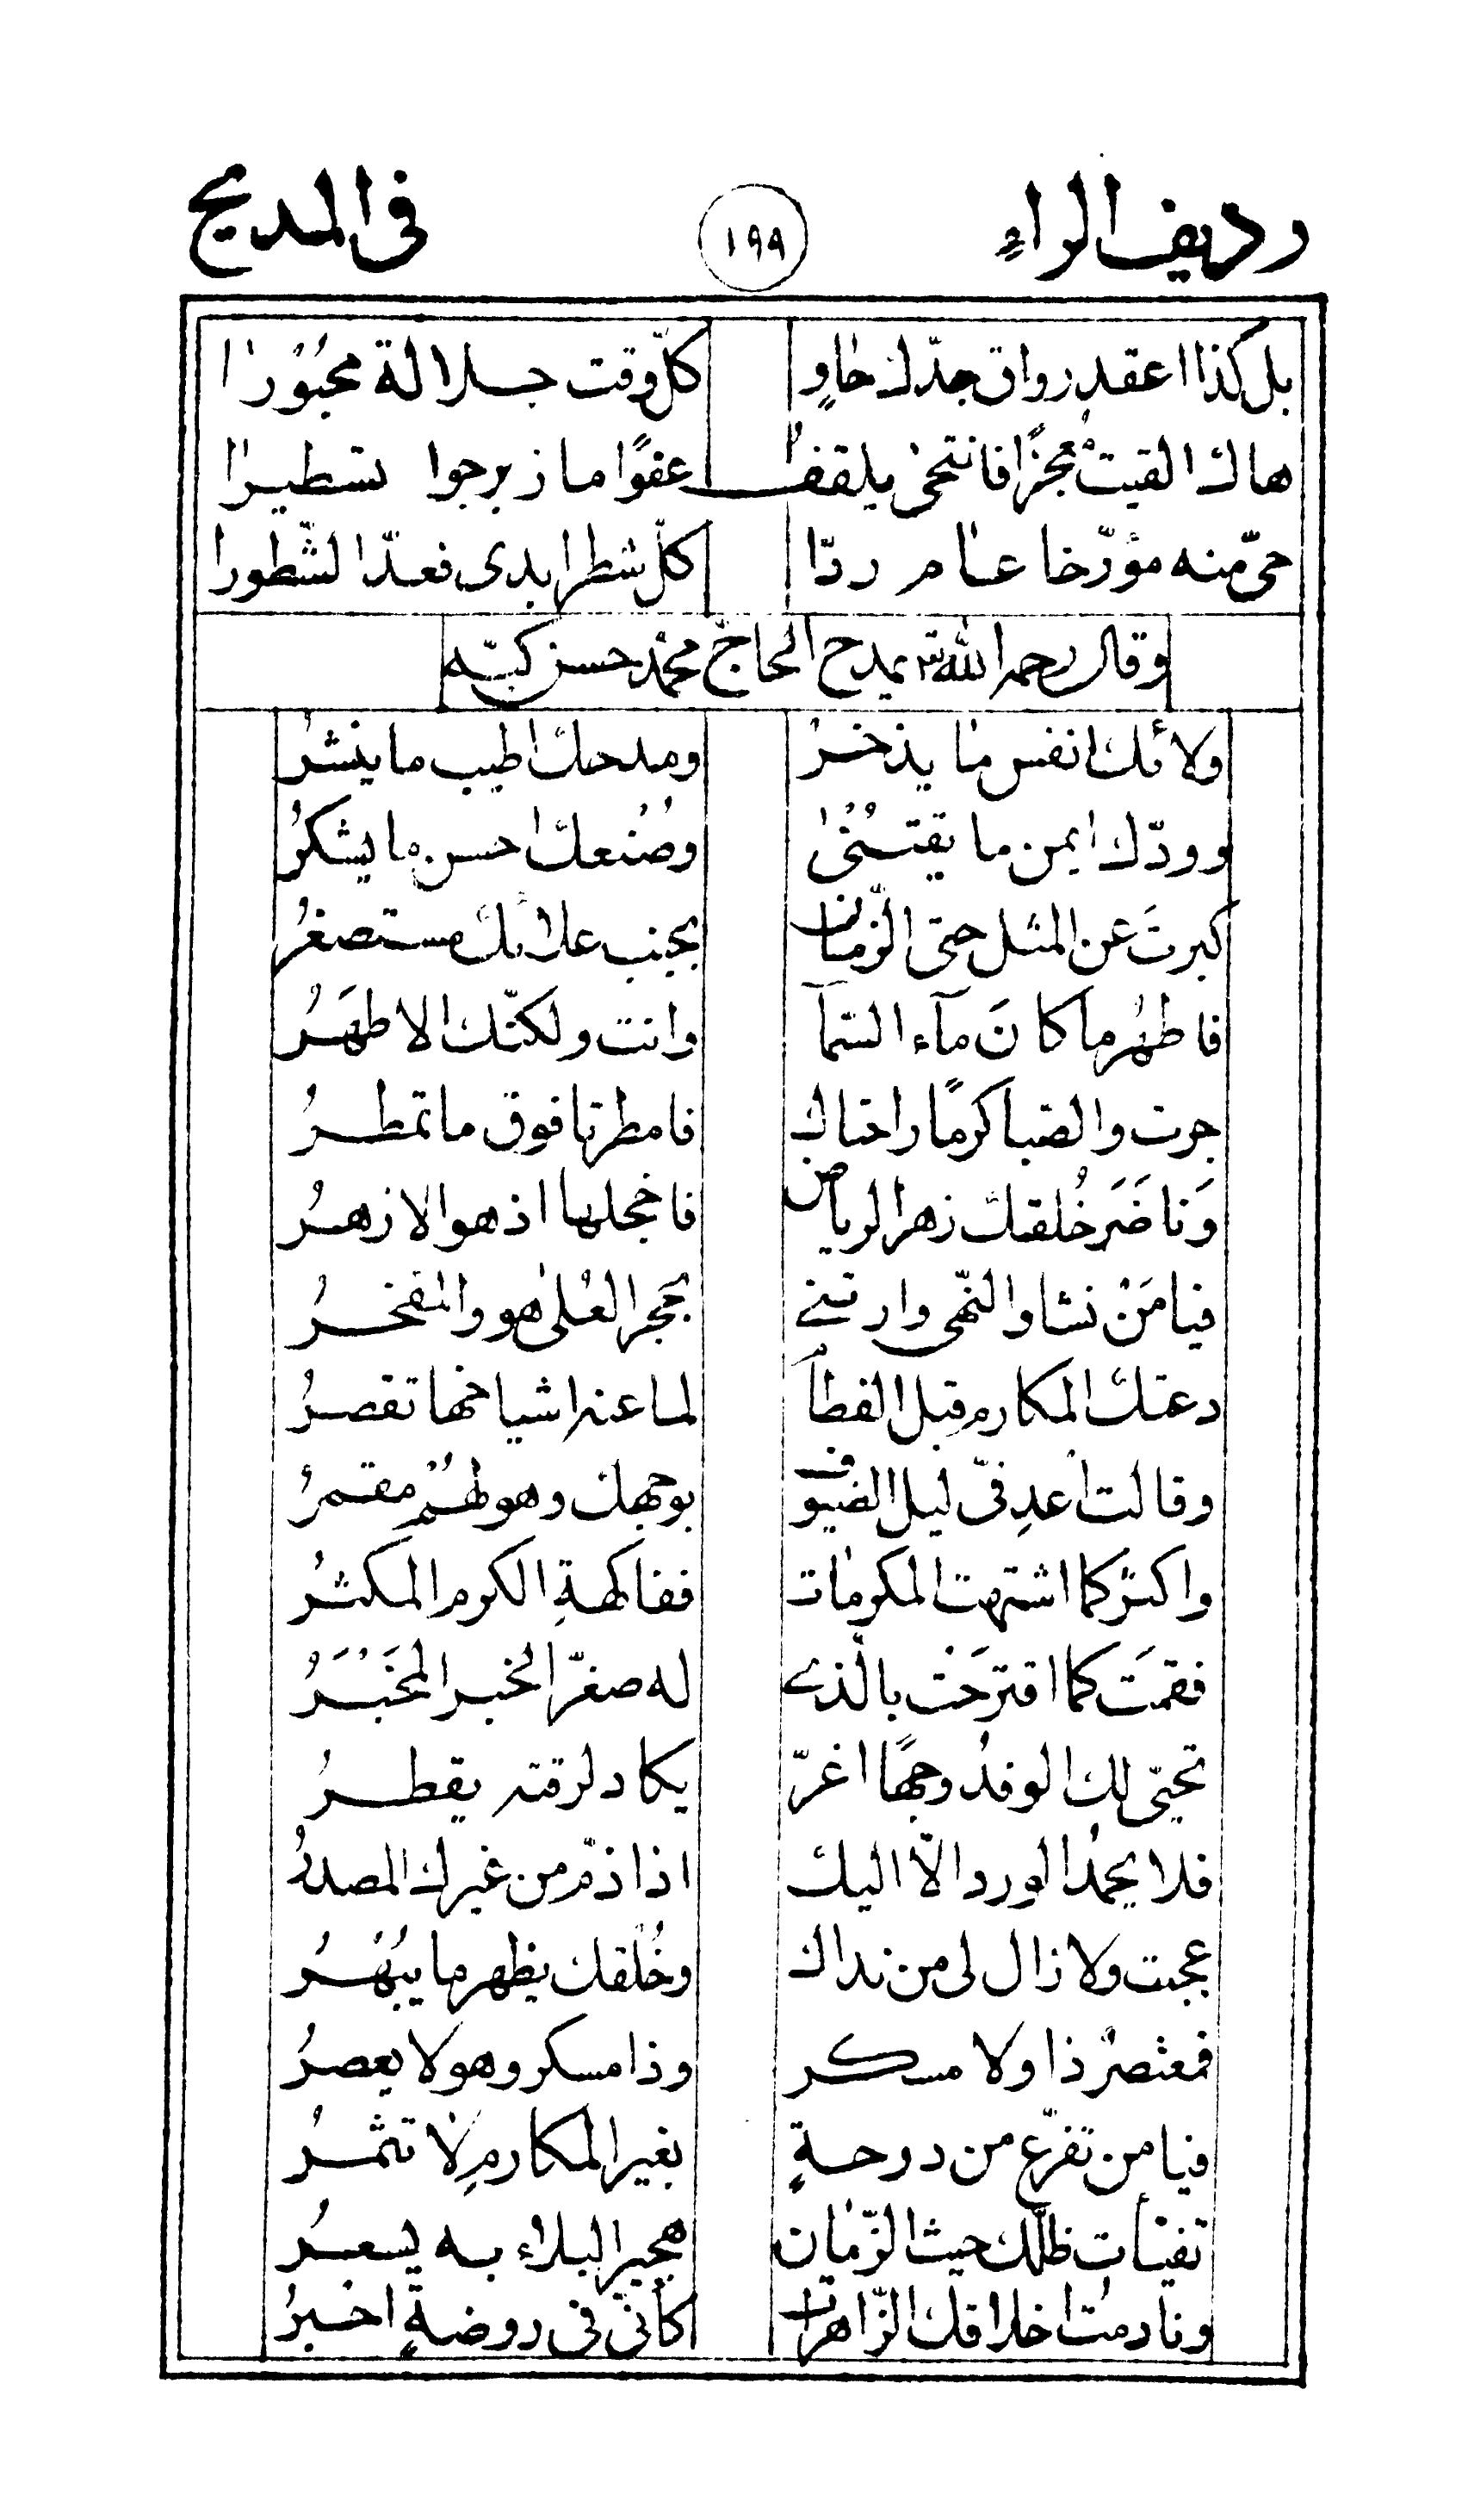 رديف الراء ١٩٩ في المديح
بل كذا اعقد رواق جدّك حاوٍ كلّ وقت جلالة محبُوْرا
هاك القيتُ مُعجزًا فانتحى يلقف عفوًا ما زبرجوا تسطيرا
حيّ منه مؤرّخا عام ردّا كلّ شطر ابدى فعدّ الشّطورا
وقال رحمه الله تع يمدح الحاجّ محمّد حسن كبّه
ولائك انفس ما يذخر ومدحك اطيب ما ينشرُ
وودّك ايمن ما يقتنىٰ وصُنعك احسن ما يشكرُ
كبرتَ عن المثل حتى الزّمان بجنب علائك مستصغرُ
فاطهرُ ما كانَ مآء السّمآ وانت ولكنّك الاطهَرُ
جرت والصّبا كرمًا راحتاك فامطرتها فوق ما تمطرُ
وَناضَرَ خُلقك زهر الرياض فاخجلها اذ هو الازهرُ
فيا مَنْ نشا والنّهى وارتبى بحجر العُلىٰ هو والمفخرُ
دعتك المكارم قبل الفطام لما عنه اشياخها تقصرُ
وقالت اَعدِ فيّ ليل الضيوف بوجهك وهو لهُمْ مقمرُ
واكثر كما اشتهت المكرمات ففاكهةِ الكرم المكثرُ
فقمتَ كما اقترحَتْ بالّذى له صغّر الخبر المَخْبَرُ
تحيّى لك الوفدُ وجهًا اغرّ يكاد لرقته يقطرُ
فلا يحمدُ الورد الّا اليك اذا ذمّ من غيرك المصدرُ
عجبت ولا زال لى من نداك وخُلقك يظهر ما يبْهُرُ
فمعتصرٌ ذا ولا مسكر وذا مسكر وهو لا يعصرُ
فيا من تفرّع من دوحةٍ بغير المكارمِ لا تثمرُ
تفيّأت ظلّك حيث الزّمان هجير البلاء به يسعرُ
ونادمتُ اخلاقك الزّاهرات كأنّى فى روضةٍ احبرُ